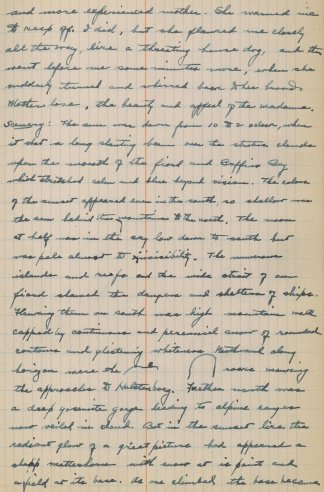 and more experienced mother. She warned me
to keep off. I did, but she followed me closely
all the way, like a threatening house dog, and then
went before me some minutes more, when she
suddenly turned and whirred back to her brood.
Mother love, the beauty and appeal of the madonna.
Scenery: The sun was down from 10 to 2 o'clock, when
it shot a long slanting beam over the strata clouds
upon the mouth of the fiord and Baffins Bay
which stretched calm and blue beyond vision. The colors
of the sunset appeared even in the south, so shallow was
the sun behind the mountains to the north. The moon
at half was in the sky low down to south but
was pale almost to invisibility. The numerous
islands and reefs and the wide strait of our
fiord showed the dangers and shelters of ships.
Flanking them on south was high mountain well
capped by continuous and perennial snow of rounded
contours and glistening whiteness. Northward along
horizon were the rocks marking
the approaches to Holstenborg. Farther north was
a deep yosemite gorge leading to alpine ranges
now veiled in cloud. But in the sunset like the
radiant glow of a great picture had appeared a
sharp matterhorn with snow at its point and
a field at its base. As we climbed the base became